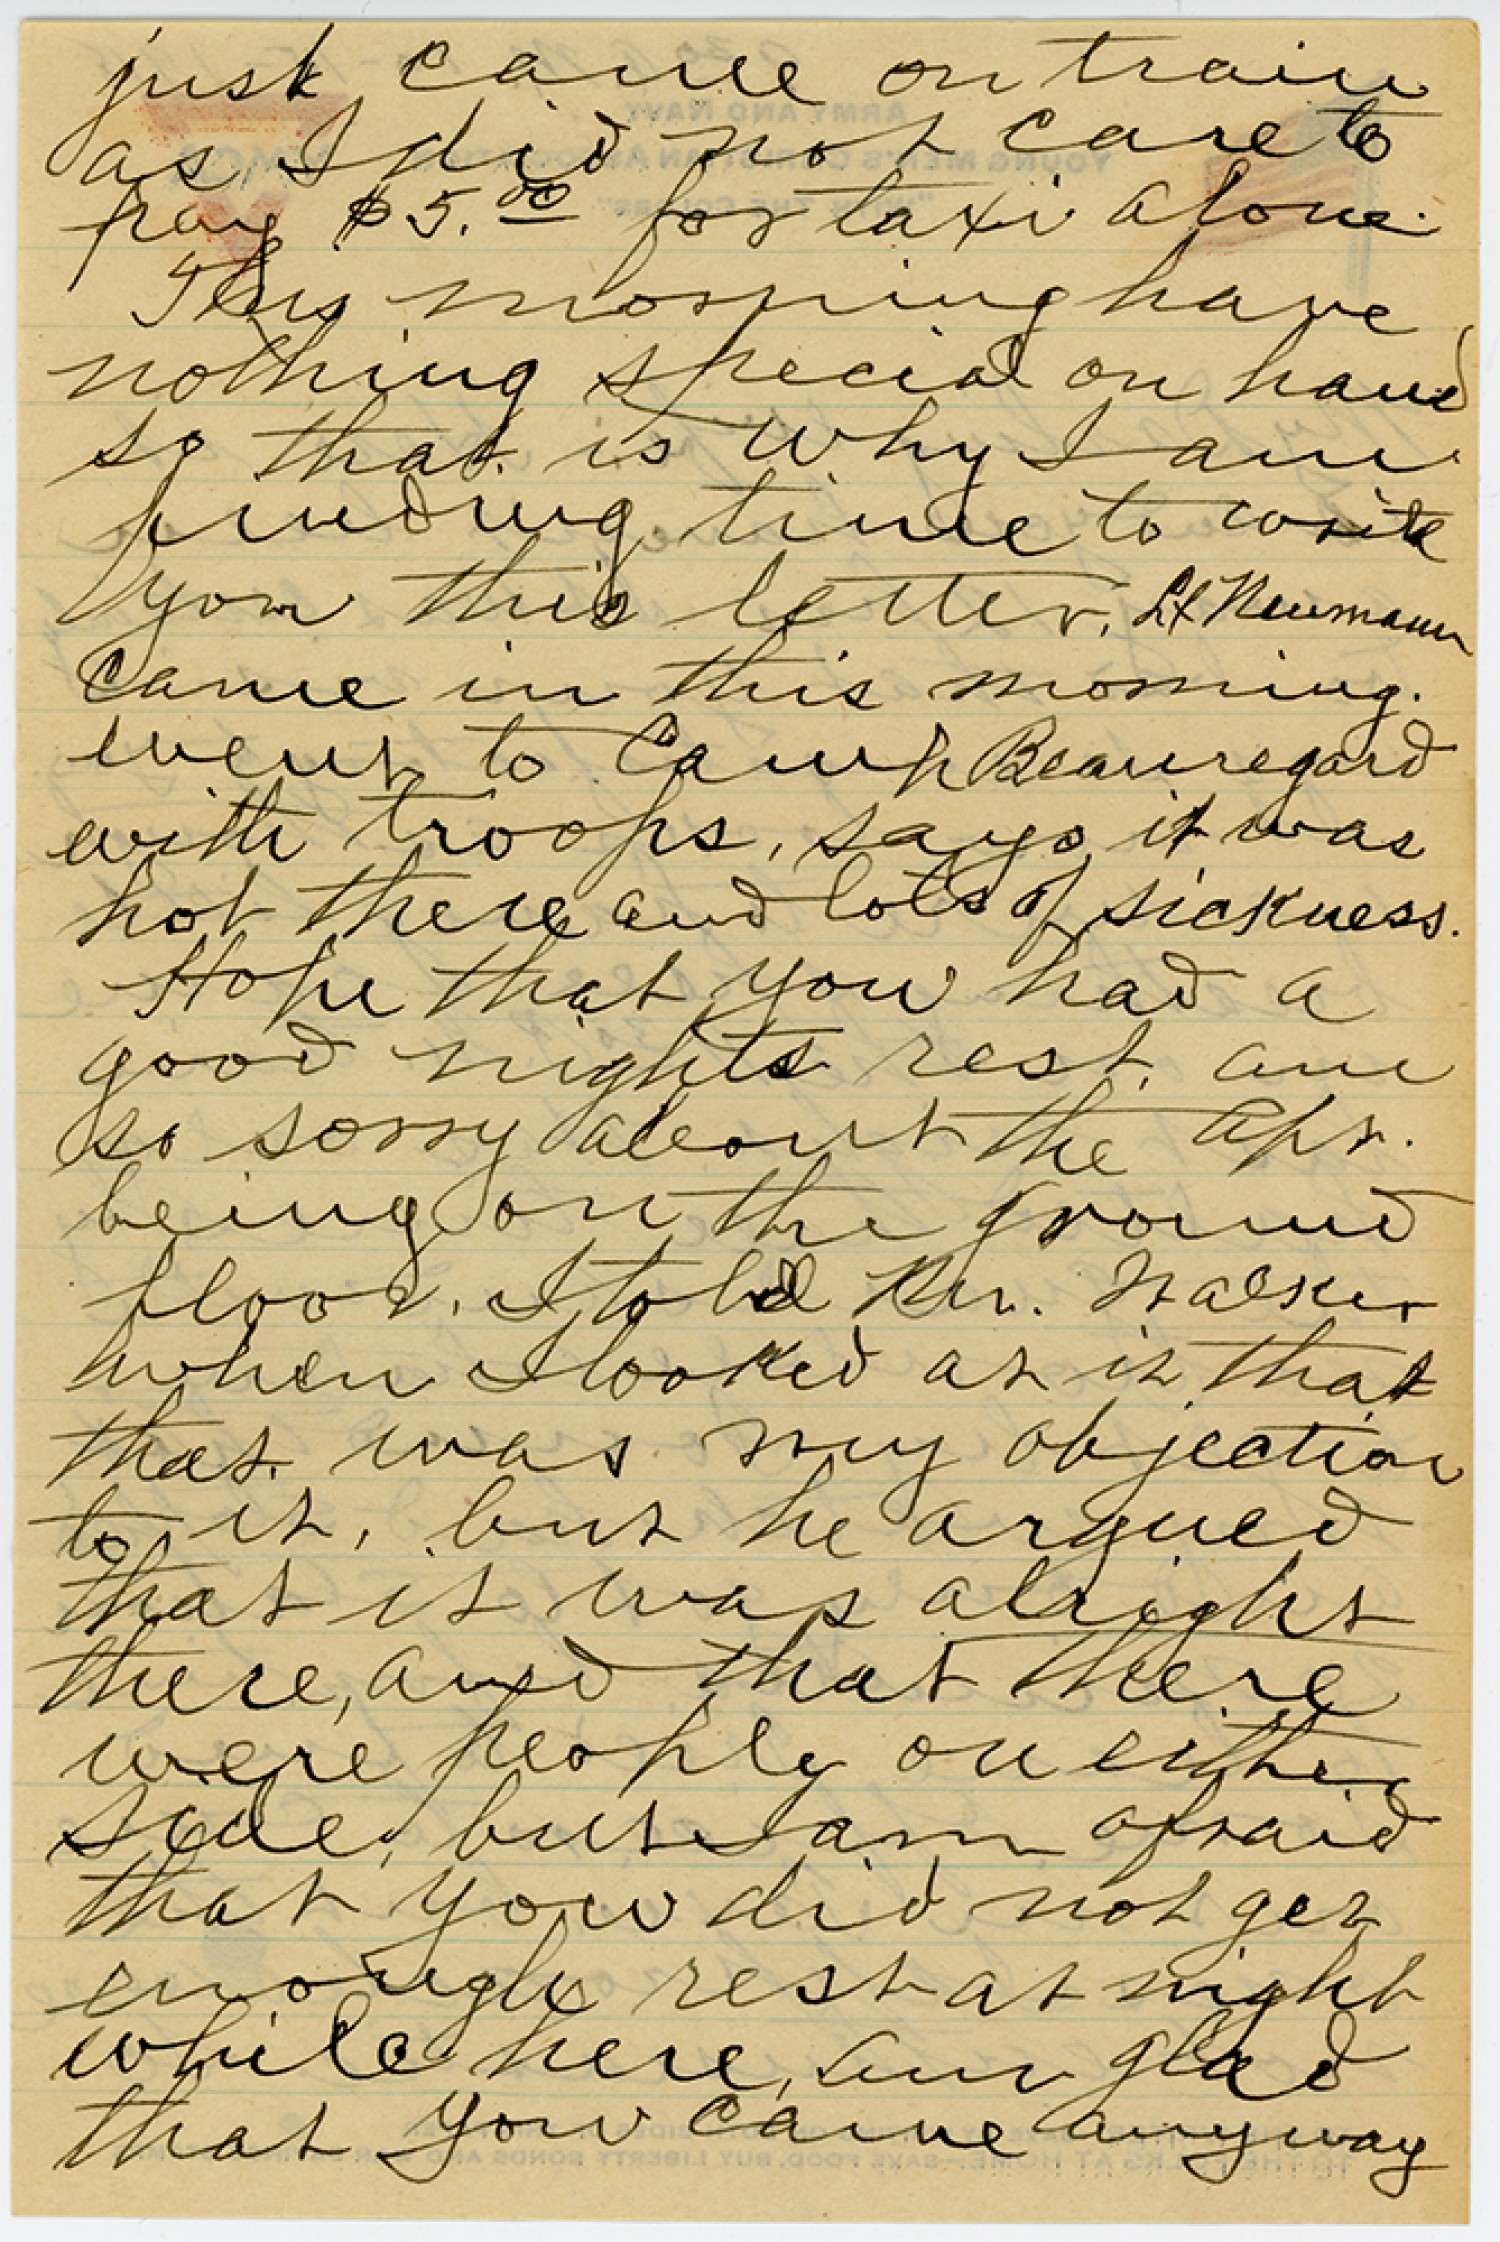 just came on train
as I did not care to
pay $5.00 for taxi alone.
This morning have
nothing special on hand
so that is why I am
finding time to write
you this letter. Lt Neumann
came in this morning.
went to Camp Beauregard
with troops, says it was
hot there and lots of sickness.
Hope that you had a
good nights rest, am
so sorry about the apt.
being on the ground
floor. I told Mr. Walker
when I looked at it that
that was my objection
to it, but he argued
that it was alright
there, and that there
were people on either
side, but am afraid
that you did not get
enough rest at night
while here, am glad
that you came anyway
ARMY AND NAVY
YOUNG MEN'S CHRISTIAN ASSOCIATION
"WITH THE COLORS"
TO THE FOLKS AT HOME.—SAVE FOOD, BUY LIBERTY BONDS AND WAR SAVINGS